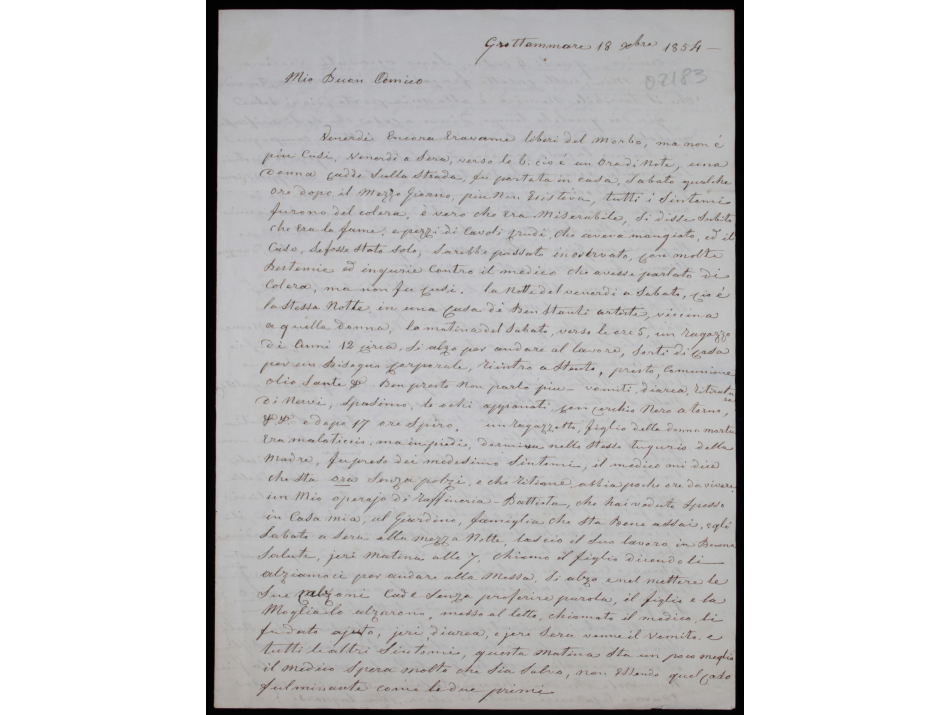 Grottammare 18 xbre 1854 —
02183
Mio Buon Amico
Venerdi Encora Eravamo liberi del Morbo, ma non é
piu Cusi, Venerdi a Sera, verso le 6. cio é un Ora di Note, una
Donna cadde Sulla Strada, fu portata in casa, Sabato qualche
Ore dopo il Mezzo Giorno, piu Non Esisteva, tutti i Sintomi
furono del colera, é vero che Era Miserabile, Si disse Subito
che Era la fame, e pezzi di Cavoli Crudi, che aveva mangiato, ed il
Caso, Se fosse Stato Solo, Sarebbe passato inoservato, con molte
bestemie ed ingiurie Contro il medico che avesse parlato di
Colera, ma non fu Cusi. la Notte del venerdi a Sabato, cio é
la Stessa Notte, in una Casa di Ben Stanti artiste, viccina
a quella Donna, la matina del Sabato, verso le ore 5, un ragazzo
di Anni 12 circa, Si alzo per andare al lavoro, Sorti di Casa
per un bisogno Corporale, rientro a Stento, presto, Comunione
olio Santo & Ben presto Non parlo piu vomiti, diarea, ritiratura
di Nervi, Spasimo, le ochi appanati con cerchio Nero a torno,
&&. e dopo 17 ore Spiro. un ragazzetto, figlio della donna morta
Era malaticio, ma in piedi, dormiva nello Stesso tugurio della
Madre, fu preso dei medesimo Sintomi, il medico mi dice
che Sta ora Senza polzi, e che ritiene, abbia poche ore da vivere
un Mio operajo di raffineria - Battista, che hai veduto Spesso
in Casa mia, al Giardino, famiglia che Sta Bene assai, egli
Sabato a Sera alla mezza Notte, lascio il Suo lavoro in Buona
Salute, jeri Matina alle 7, chiamo il figlio dicendoli
alziamoci per andare alla Messa, Si alzo e nel mettere le
Sue Calzoni Cade Senza proferire parola, il figlio e la
Moglia lo alzarono, messo al letto, chiamato il medico, li
fu dato ajuto, jeri, diarea, e jeri Sera venne il vomito e
tutti le altri Sintomi, questa Matina Sta un poco meglio
il Medico Spera molto che Sia Salvo, non Essendo quel Caso
fulminante come le due primi